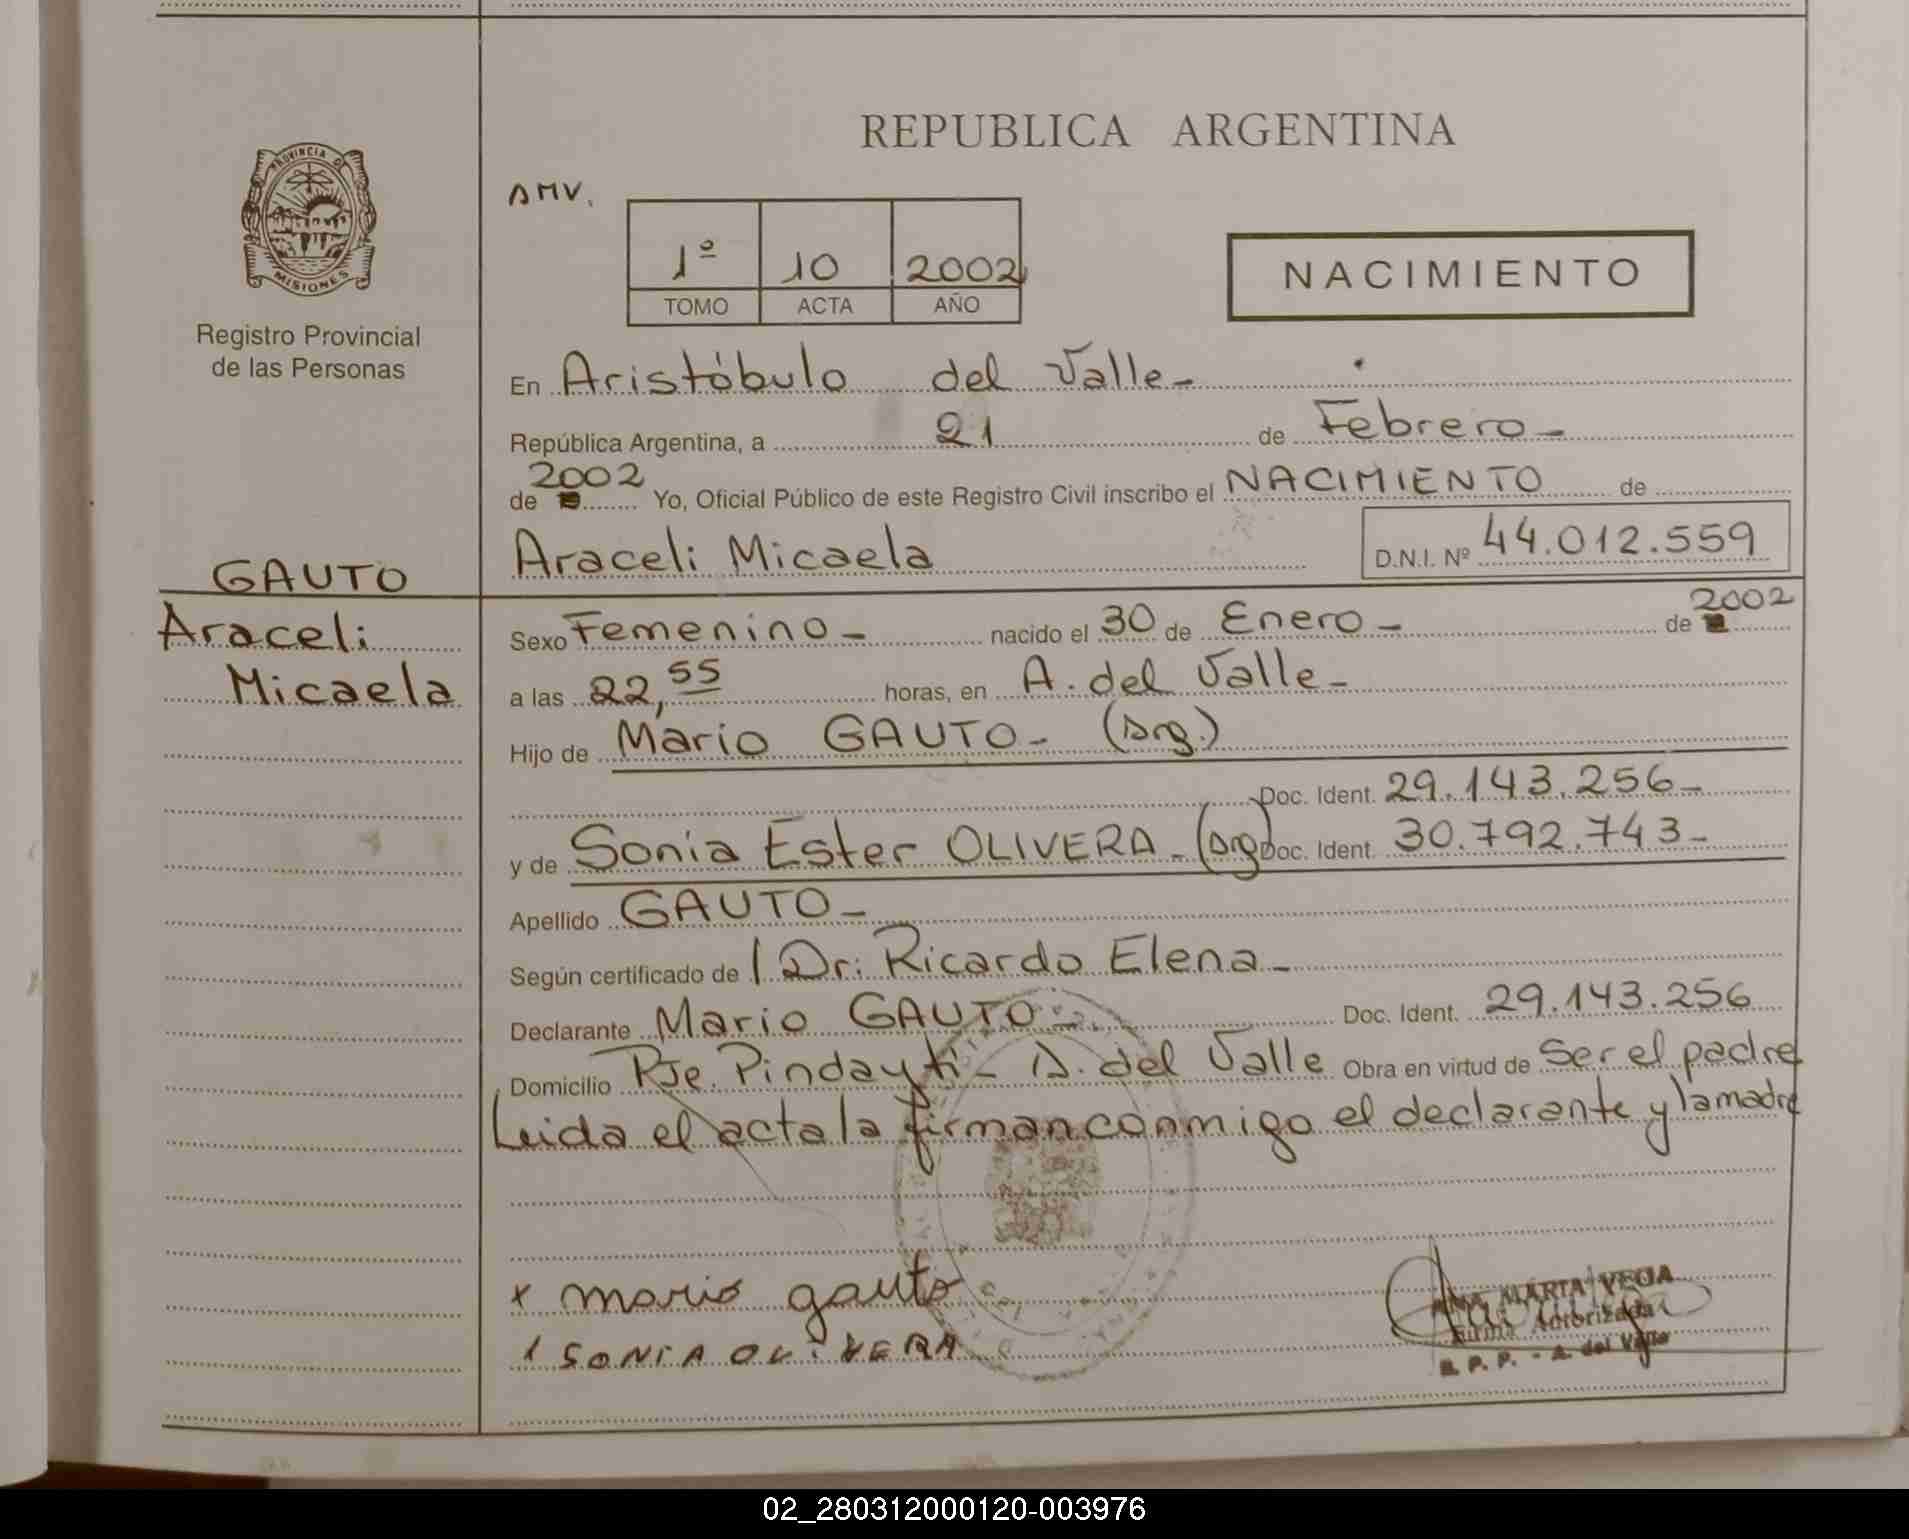 REPUBLICA ARGENTINA
PROVINCIA D
MISIONES
Registro Provincial
de las Personas
AMV.
1º 10 2002
TOMO ACTA AÑO
NACIMIENTO
En Aristóbulo del Valle-
República Argentina, a 21 de Febrero-
de 2002 Yo, Oficial Público de este Registro Civil inscribo el NACIMIENTO de
Araceli Micaela D.N.I. Nº 44.012.559
GAUTO
Araceli
Micaela
Sexo Femenino- nacido el 30 de Enero- de 2002
a las 22,55 horas, en A. del Valle-
Hijo de Mario GAUTO- (Arg.)
Doc. Ident. 29.143.256-
y de Sonia Ester OLIVERA-(Arg) Doc. Ident. 30.792.743-
Apellido GAUTO-
Según certificado de / Dr: Ricardo Elena-
Declarante Mario GAUTO- Doc. Ident. 29.143.256
Domicilio Pje. Pindaytí- A. del Valle Obra en virtud de Ser el padre
Leida el acta la firman conmigo el declarante y la madre
x mario gauto
SONIA OLiVERA
ANA MARIA VEGA
Firma Autorizada
R. P. P. - A. del Valle
02_280312000120-003976